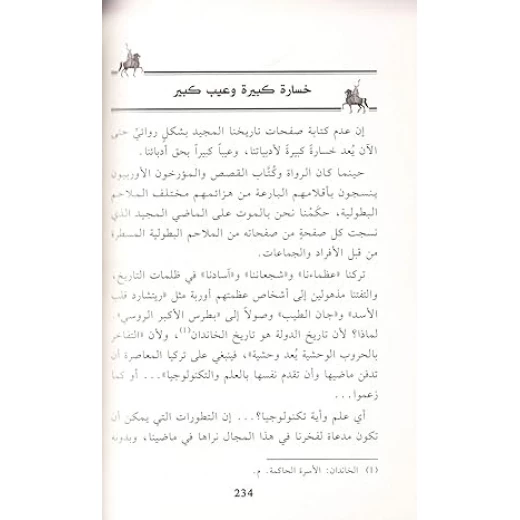 خسارة كبيرة وعيب كبير
إن عدم كتابة صفحات تاريخنا المجيد بشكل روائيّ حتى
الآن يُعد خسارةً كبيرةً لأدبياتنا، وعيباً كبيراً بحق أدبائنا.
حينما كان الرواة وكُتَّاب القصص والمؤرخون الأوربيون
ينسجون بأقلامهم البارعة من هزائمهم مختلف الملاحم
البطولية، حكَمْنا نحن بالموت على الماضي المجيد الذي
نسجت كل صفحةٍ من صفحاته من الملاحم البطولية المسطرة
من قبل الأفراد والجماعات.
تركنا «عظماءنا» و«شجعاننا» و«آسادنا» في ظلمات التاريخ،
والتفتنا مذهولين إلى أشخاص عظمتهم أوربة مثل «ريتشارد قلب
الأسد» و«جان الطيب» وصولاً إلى «بطرس الأكبر الروسي».
لماذا؟ لأن تاريخ الدولة هو تاريخ الخاندان(1)، ولأن «التفاخر
بالحروب الوحشية يُعد وحشية»، فينبغي على تركيا المعاصرة أن
تدفن ماضيها وأن تقدم نفسها بالعلم والتكنولوجيا»... أو كما
زعموا...
أي علم وأية تكنولوجيا؟... إن التطورات التي يمكن أن
تكون مدعاة لفخرنا في هذا المجال نراها في ماضينا، وبدونه
(1) الخاندان: الأسرة الحاكمة. م.
234